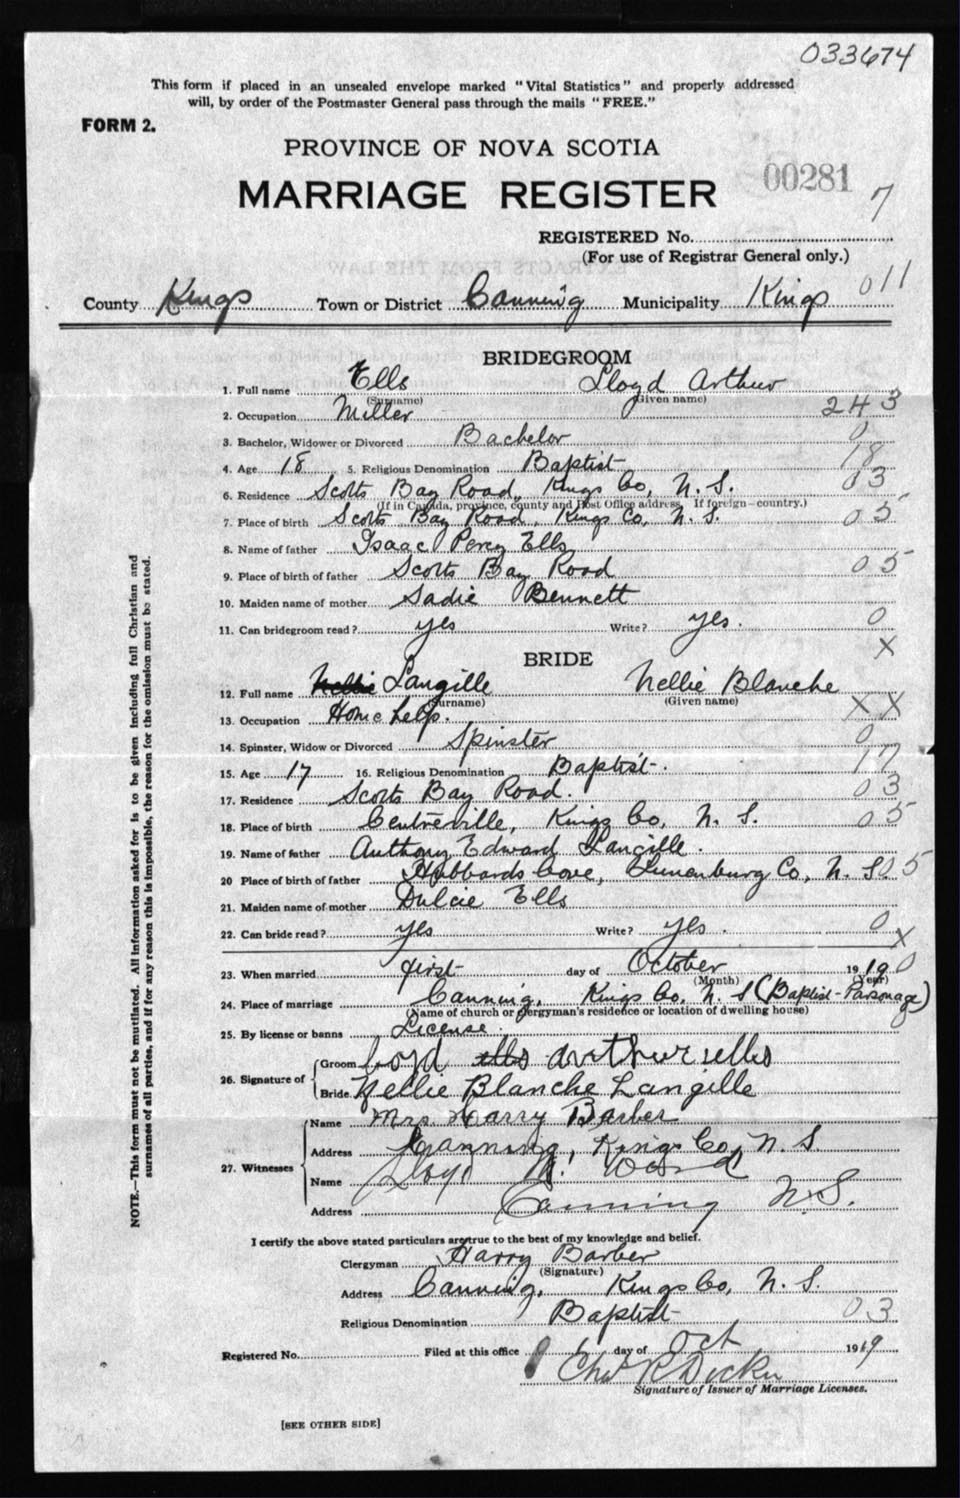 033674
This form if placed in an unsealed envelope marked "Vital Statistics" and properly addressed
will, by order of the Postmaster General pass through the mails "FREE."
FORM 2.
PROVINCE OF NOVA SCOTIA
00281
MARRIAGE REGISTER
7
REGISTERED No.
(For use of Registrar General only.)
011
County Kings Town or District Canning Municipality Kings
BRIDEGROOM
1. Full name Ells Lloyd Arthur
(Surname) (Given name)
2. Occupation Miller 243
3. Bachelor, Widower or Divorced Bachelor 0
4. Age 18 5. Religious Denomination Baptist 18
6. Residence Scots Bay Road, Kings Co, N. S. 03
(If in Canada, province, county and Post Office address. If foreign—country.)
7. Place of birth Scots Bay Road, Kings Co, N. S. 05
8. Name of father Isaac Percy Ells
9. Place of birth of father Scots Bay Road 05
10. Maiden name of mother Sadie Bennett
11. Can bridegroom read? yes Write? yes. 0
X
BRIDE
12. Full name Nellie Langille Nellie Blanche
(Surname) (Given name)
13. Occupation Home help. XX
14. Spinster, Widow or Divorced Spinster 0
15. Age 17 16. Religious Denomination Baptist. 17
17. Residence Scots Bay Road. 03
18. Place of birth Centreville, Kings Co, N. S. 05
19. Name of father Anthony Edward Langille.
20 Place of birth of father Hubbards Cove, Lunenburg Co, N. S. 05
21. Maiden name of mother Dulcie Ells
22. Can bride read? yes Write? yes. 0
X
23. When married first day of October 1919 0
(Month) (Year)
24. Place of marriage Canning, Kings Co. N. S (Baptist-Parsonage)
(Name of church or clergyman's residence or location of dwelling house)
25. By license or banns License.
26. Signature of Groom Loyd ells arthur ells
Bride Nellie Blanche Langille
27. Witnesses Name Mrs Harry Barber
Address Canning, Kings Co, N. S.
Name Lloyd
Address Canning N.S.
I certify the above stated particulars are true to the best of my knowledge and belief.
Clergyman Harry Barber
(Signature)
Address Canning, Kings Co, N. S.
Religious Denomination Baptist 03
Registered No. Filed at this office 6 day of Oct 1919
Signature of Issuer of Marriage Licenses.
[SEE OTHER SIDE]
NOTE.—This form must not be mutilated. All information asked for is to be given including full Christian and
surnames of all parties, and if for any reason this is impossible, the reason for the omission must be stated.